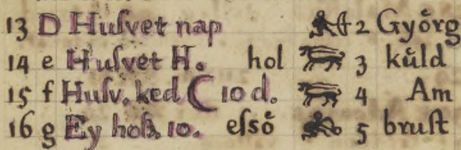 13 D Huſvet nap 2 Györg
14 e Huſvet H. hol 3 küld
15 f Huſv. ked 10 d. 4 Am
16 g Ey hold, 10. eſsö 5 bruſt